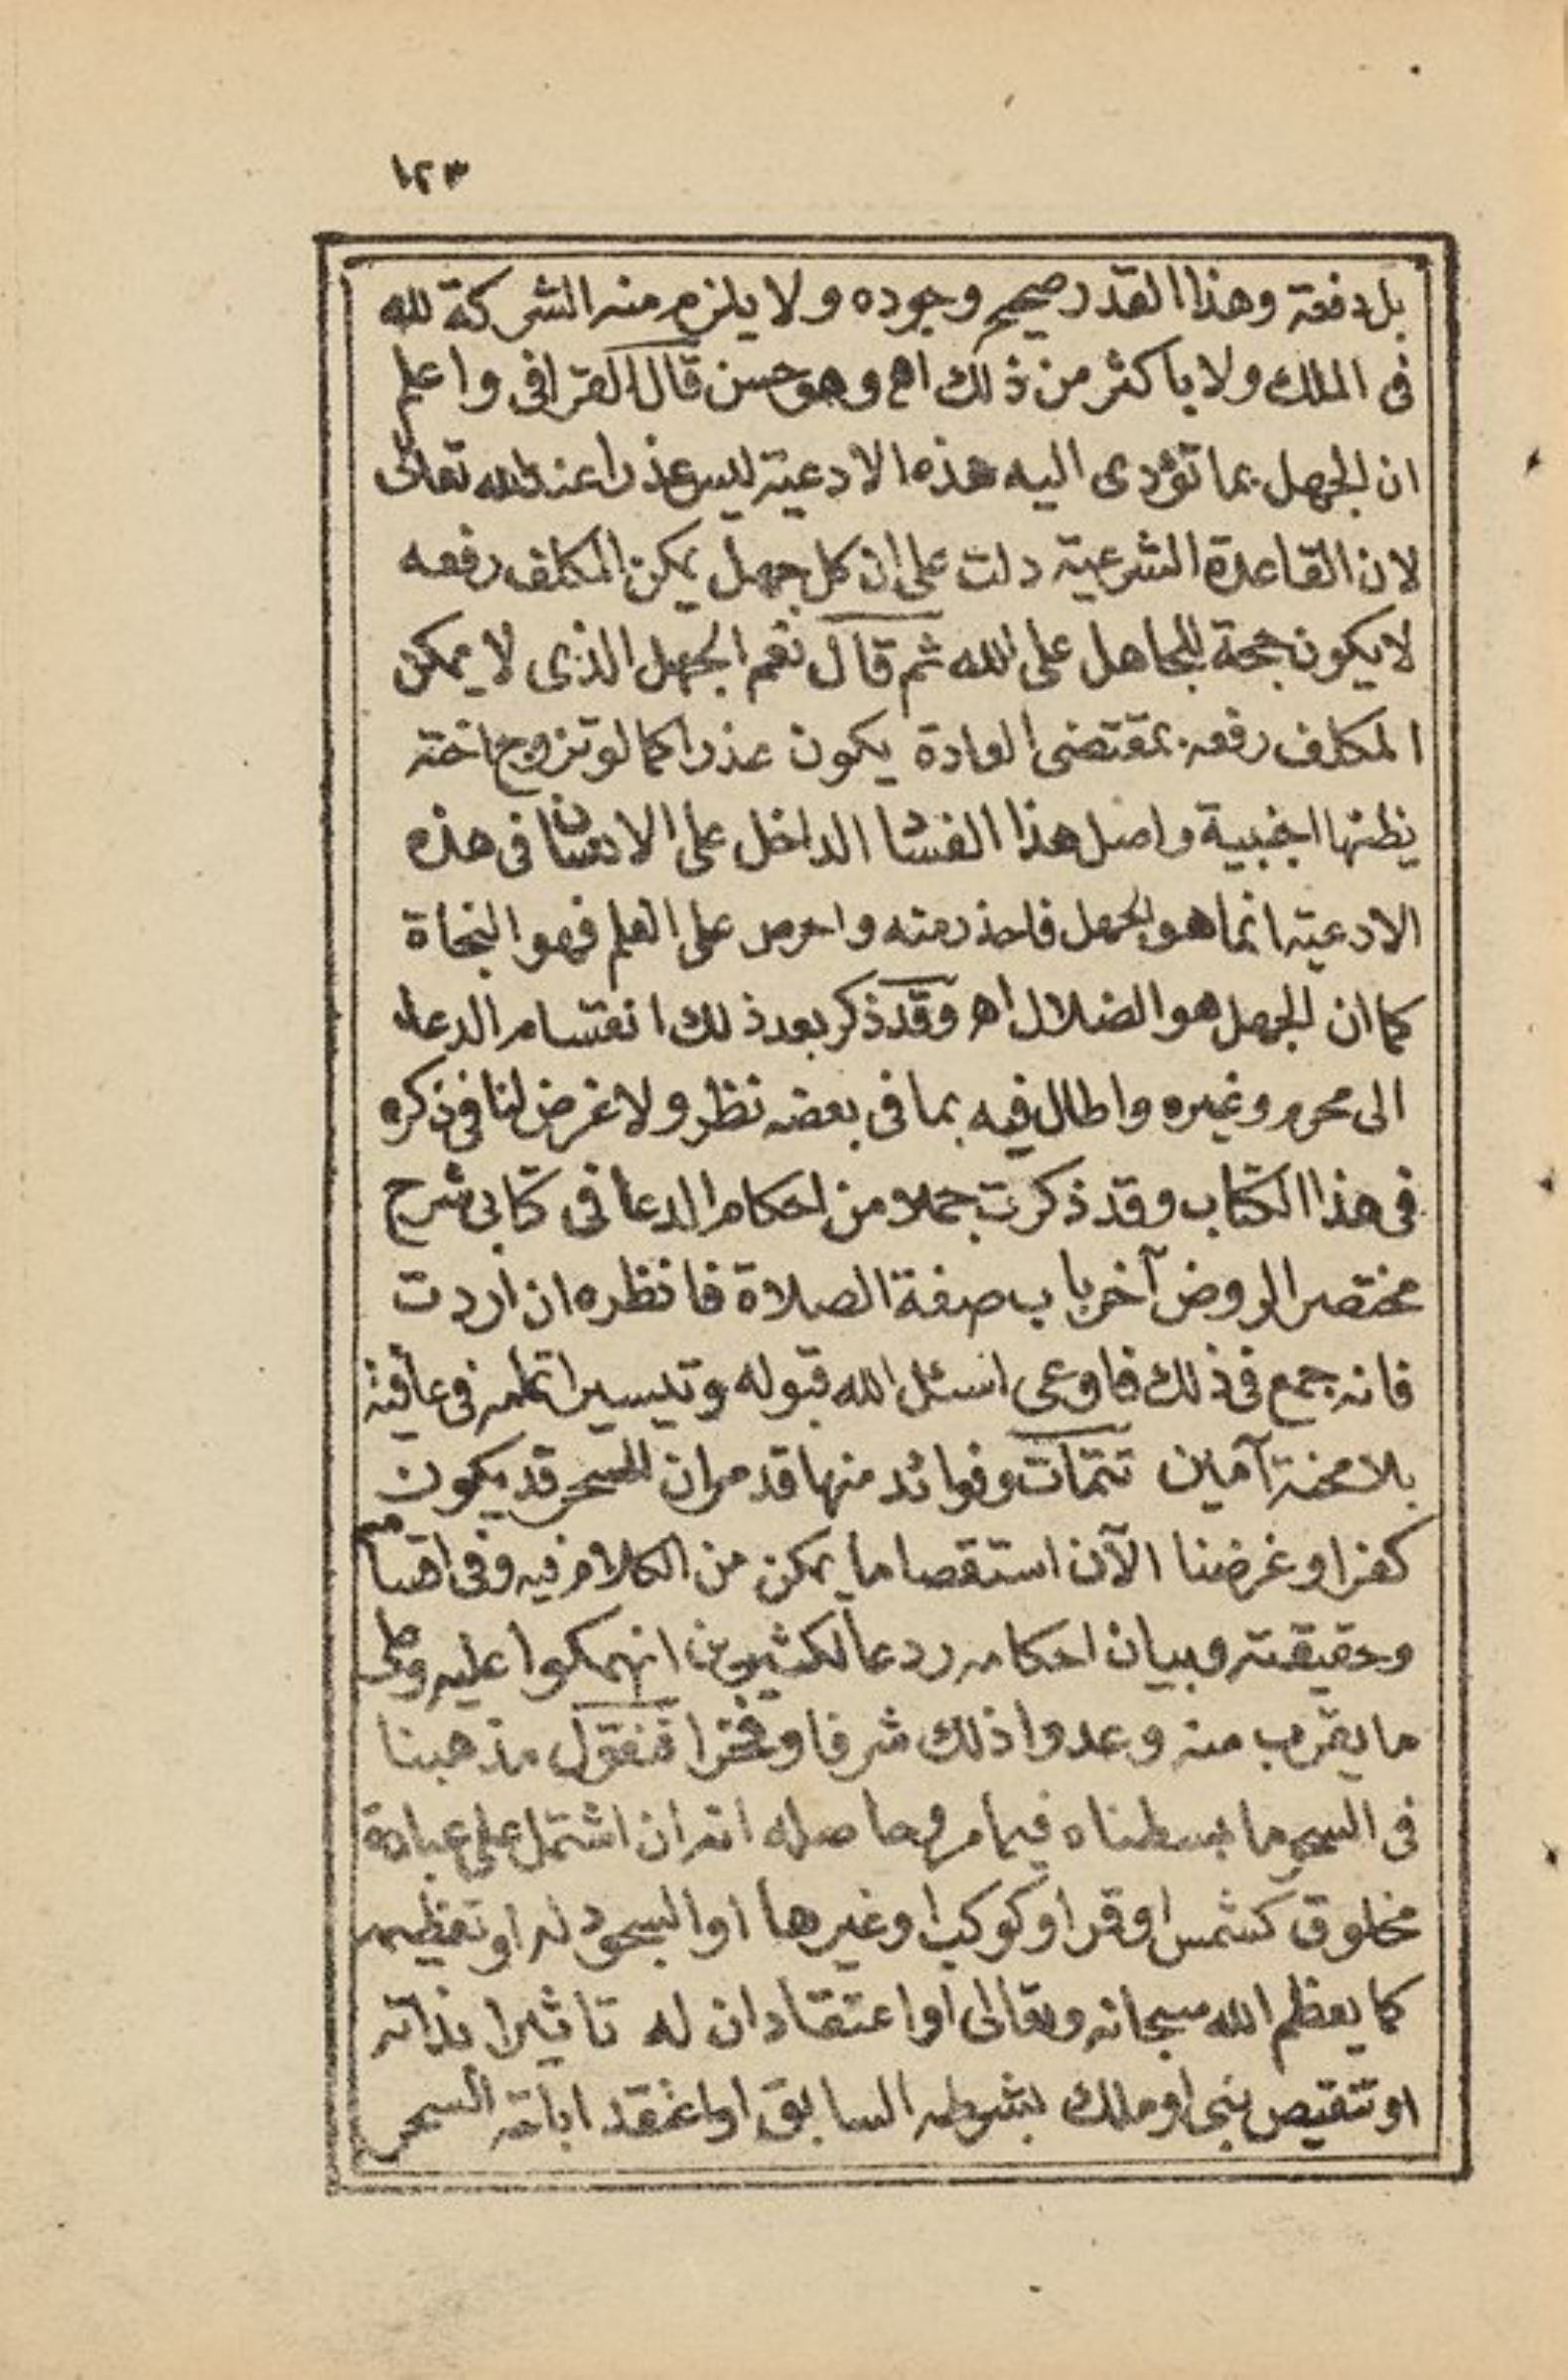 ١٢٣
بل دفعة وهذا القدر صحيح وجوده ولا يلزم منه الشركة لله
فى الملك ولا باكثر من ذلك اه وهو حسن قال القرافى واعلم
ان الجهل بما تؤدى اليه هذه الادعية ليس عذرا عند الله تعالى
لان القاعدة الشرعية دلت على ان كل جهل يمكن المكلف رفعه
لا يكون حجة للجاهل على الله ثم قال نعم الجهل الذى لا يمكن
المكلف رفعه بمقتضى العادة يكون عذرا كما لو تزوج اخته
يظنها اجنبية واصل هذا الفساد الداخل على الانسان فى هذه
الادعية انما هو الجهل فاحذر منه واحرص على العلم فهو النجاة
كما ان الجهل هو الضلال اه وقد ذكر بعد ذلك انقسام الدعاء
الى محرم وغيره واطال فيه بما فى بعضه نظر ولا غرض لنا فى ذكره
فى هذا الكتاب وقد ذكرت جملا من احكام الدعا فى كتابى شرح
مختصر الروض آخر باب صفة الصلاة فانظره ان أردت
فانه جمع فى ذلك فاوعى اسئل الله قبوله وتيسير اتمامه فى عافية
بلا محنة آمين تتمات وفوائد منها قد مر ان السحر قد يكون
كفرا وغرضنا الآن استقصا ما يمكن من الكلام فيه وفى اقسامه
وحقيقته وبيان احكامه ردعا لكثيرين انهمكوا عليه وعلى
ما يقرب منه وعدوا ذلك شرفا وفخرا فنقول مذهبنا
فى السحر ما بسطناه فيما مر وحاصله انه ان اشتمل على عبادة
مخلوق كشمس او قمر او كوكب او غيرها او السجود له او تعظيمه
كما يعظم الله سبحانه وتعالى او اعتقاد ان له تاثيرا بذاته
او تنقيص نبى او ملك بشرطه السابق او اعتقد اباحة السحر